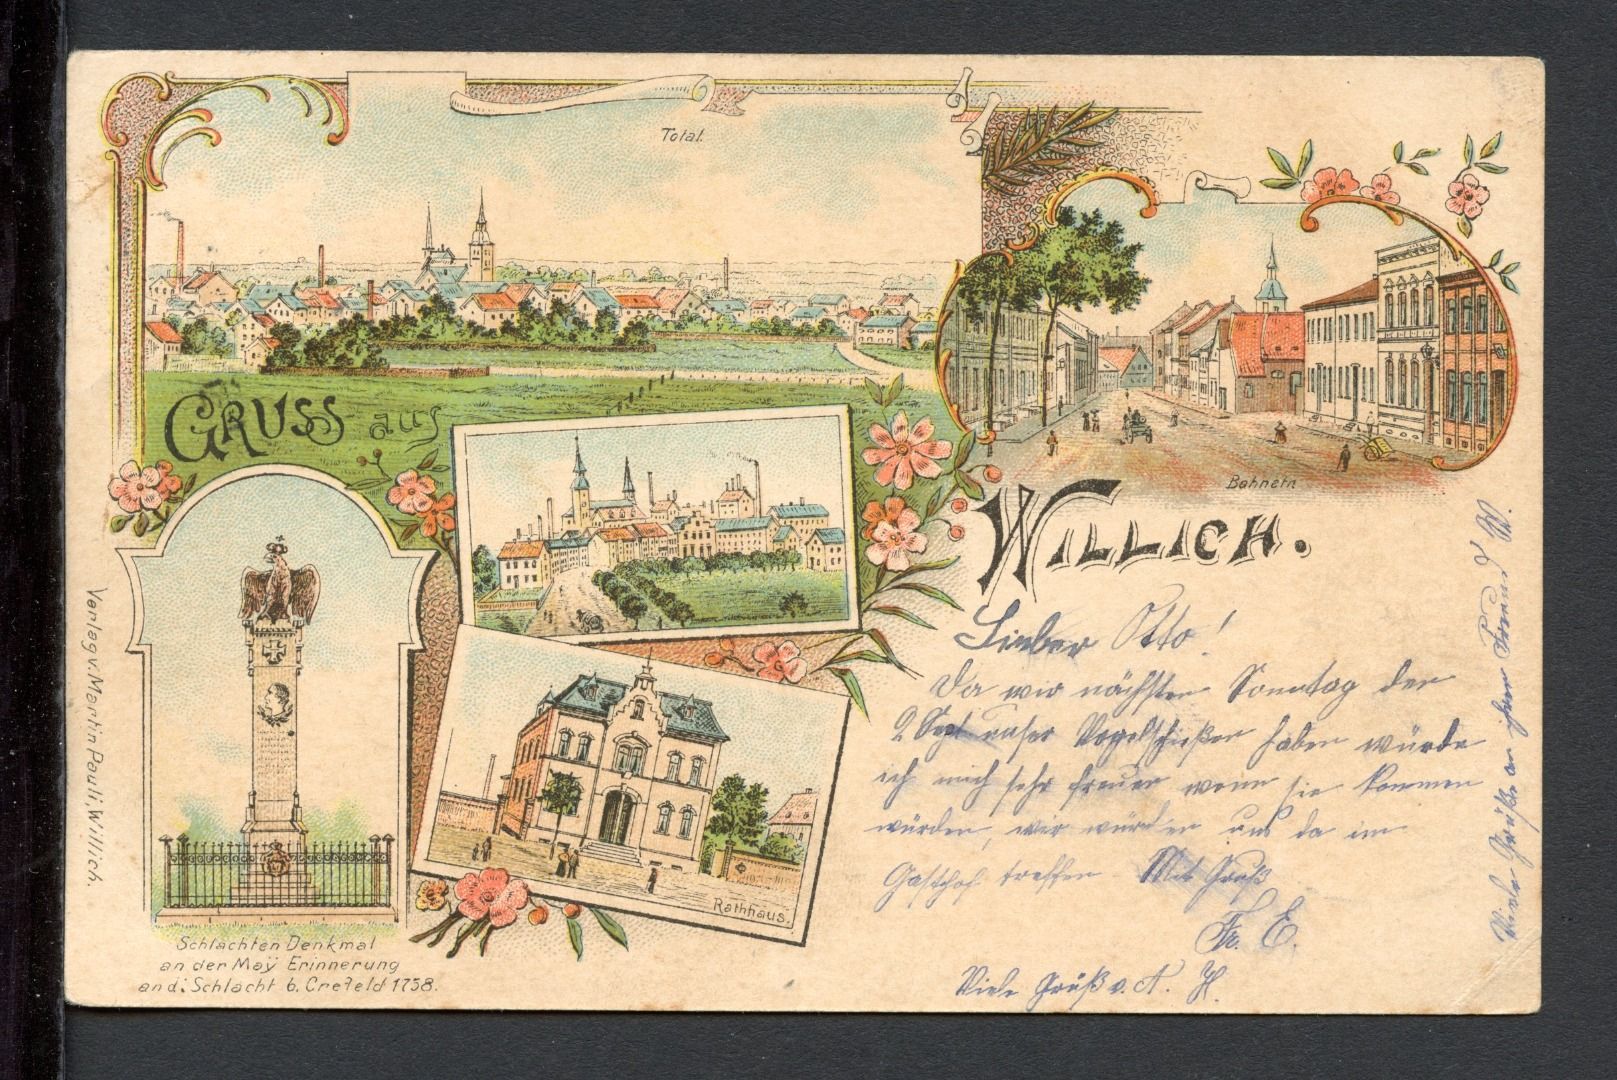 Total.
GRUSS aus
Bahnstr.
WILLICH.
Verlag v. Martin Pauli, Willich.
Rathhaus.
Schlachten Denkmal
an der Maÿ Erinnerung
an d: Schlacht b. Crefeld 1758.
Lieber Otto!
Da wir nächsten Sonntag den
2 Sept unser Vogelschießen haben würde
ich mich sehr freuen wenn sie kommen
würden, wir würden uns da im
Gasthof treffen Mit Gruß
Fr. E.
Viele Grüß v. A. H.
Viele Grüße an ihren Freund W.